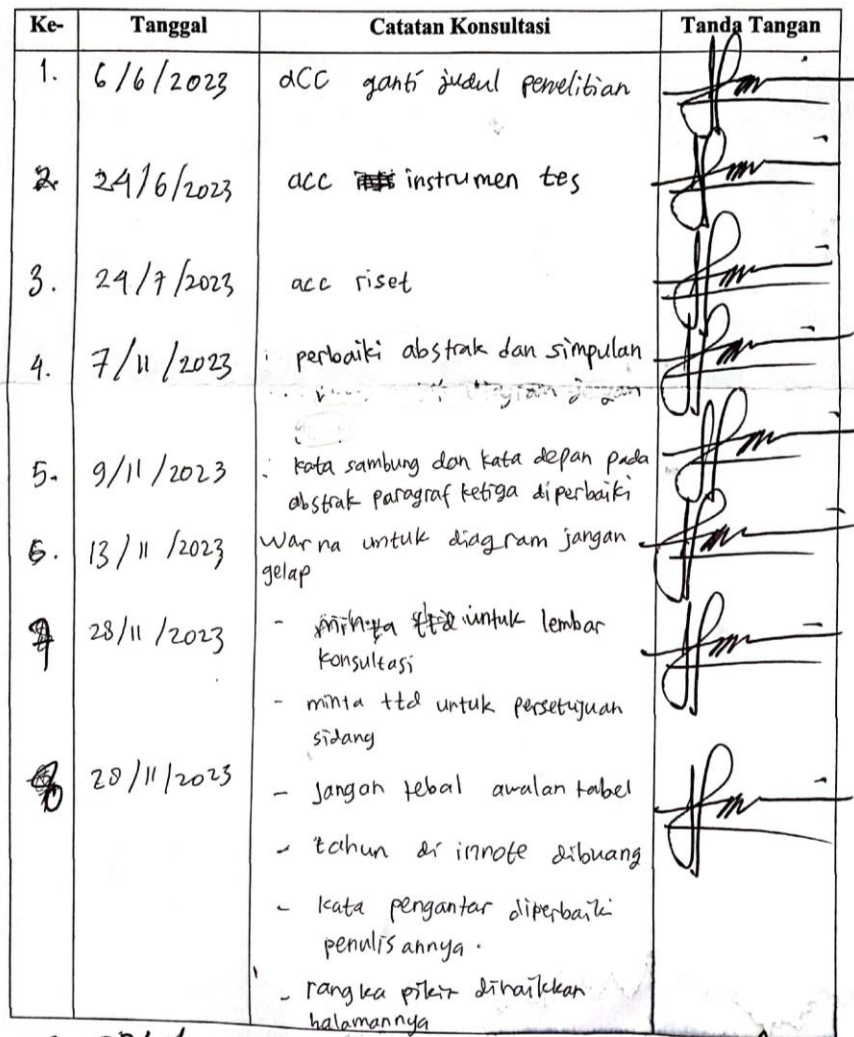 Ke- Tanggal Catatan Konsultasi Tanda Tangan
1. 6/6/2023 acc ganti judul penelitian
2. 24/6/2023 acc instrumen tes
3. 24/7/2023 acc riset
4. 7/11/2023 perbaiki abstrak dan simpulan
5. 9/11/2023 kata sambung dan kata depan pada
abstrak paragraf ketiga diperbaiki
6. 13/11/2023 Warna untuk diagram jangan
gelap
28/11/2023 - minta ttd untuk lembar
konsultasi
- minta ttd untuk persetujuan
sidang
28/11/2023
- Jangan tebal awalan tabel
- tahun di innote dibuang
- kata pengantar diperbaiki
penulisannya.
- rangka pikir dinaikkan
halamannya